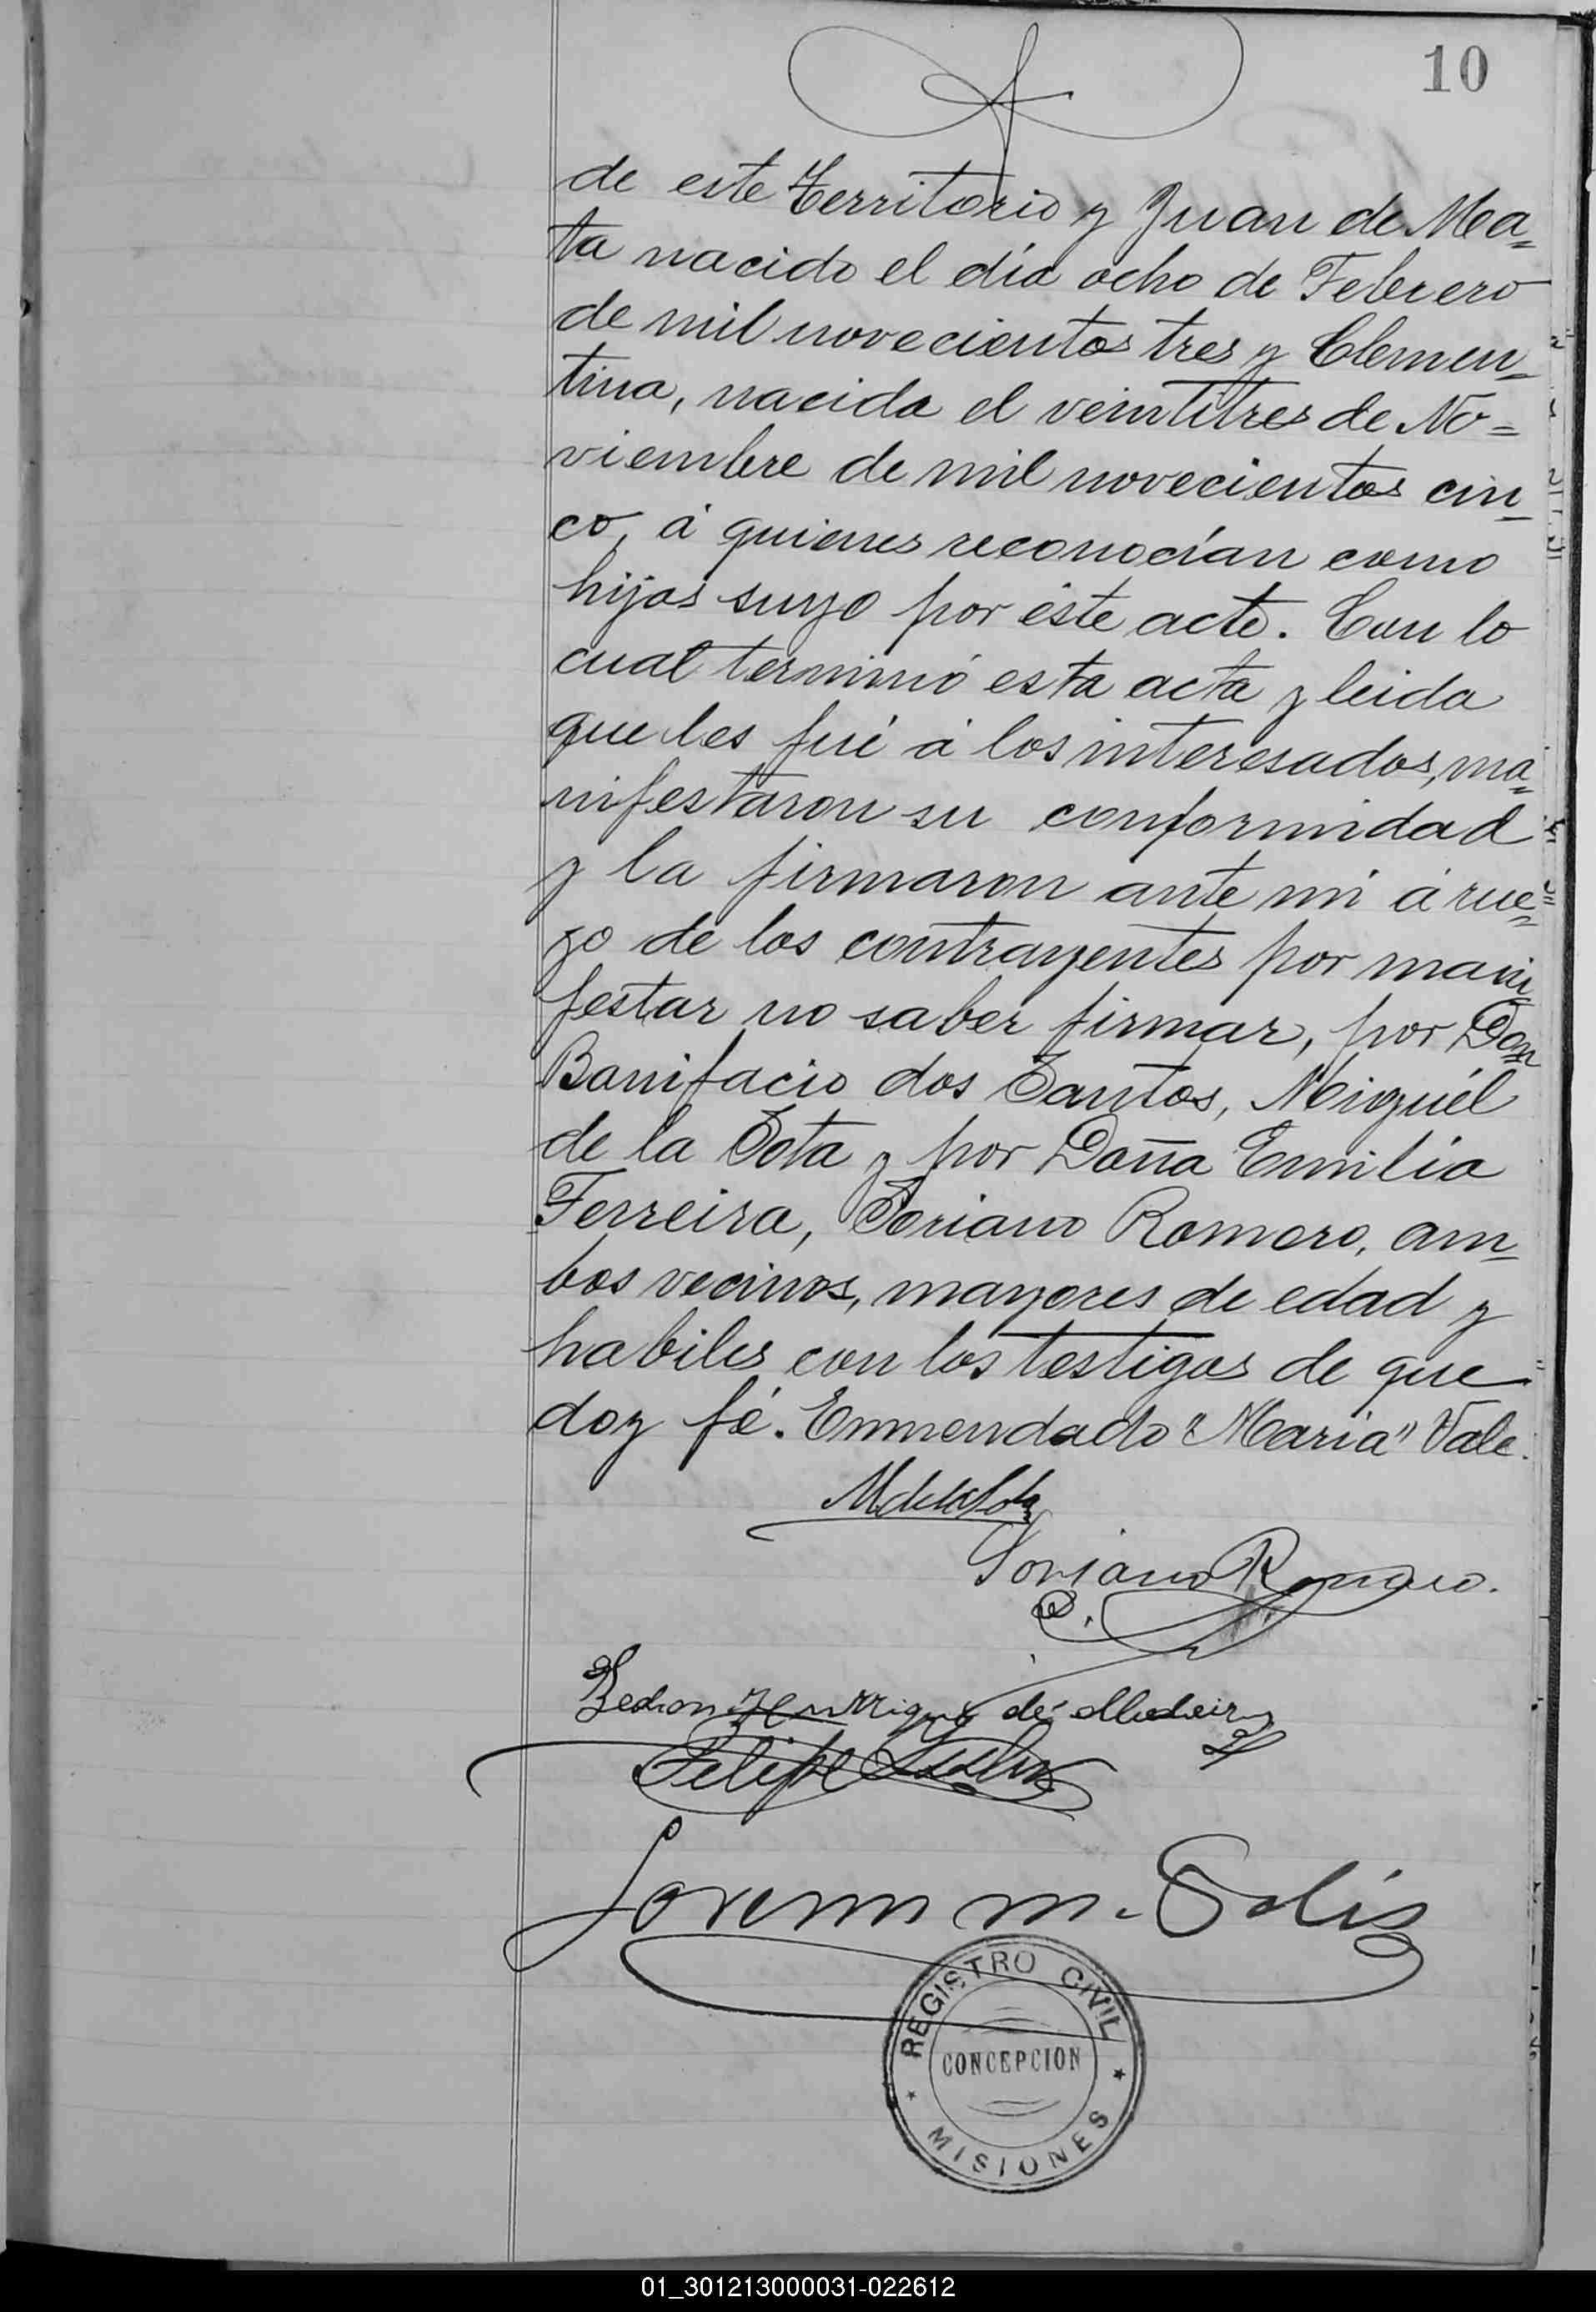 10
de este Territorio y Juan de Ma=
ta nacido el día ocho de Febrero
de mil novecientos tres y Clemen_
tina, nacida el veintitres de No=
viembre de mil novecientos cin_
co, á quienes reconocían como
hijos suyo por éste acto. Con lo
cual terminó esta acta y leida
que les fué á los interesados, ma=
nifestaron su conformidad
y la firmaron ante mi á rue=
go de los contrayentes por mani_
festar no saber firmar, por Don
Bonifacio dos Santos, Miguél
de la Sota y por Doña Emilia
Ferreira, Soriano Romero, am_
bos vecinos, mayores de edad y
habiles con los testigos de que
doy fé. Enmendado "Maria" Vale.
M de la Sota
Soriano Romero.
de
Felipe
Lorenzo M. Solis
REGISTRO CIVIL
CONCEPCION
MISIONES
01_301213000031-022612